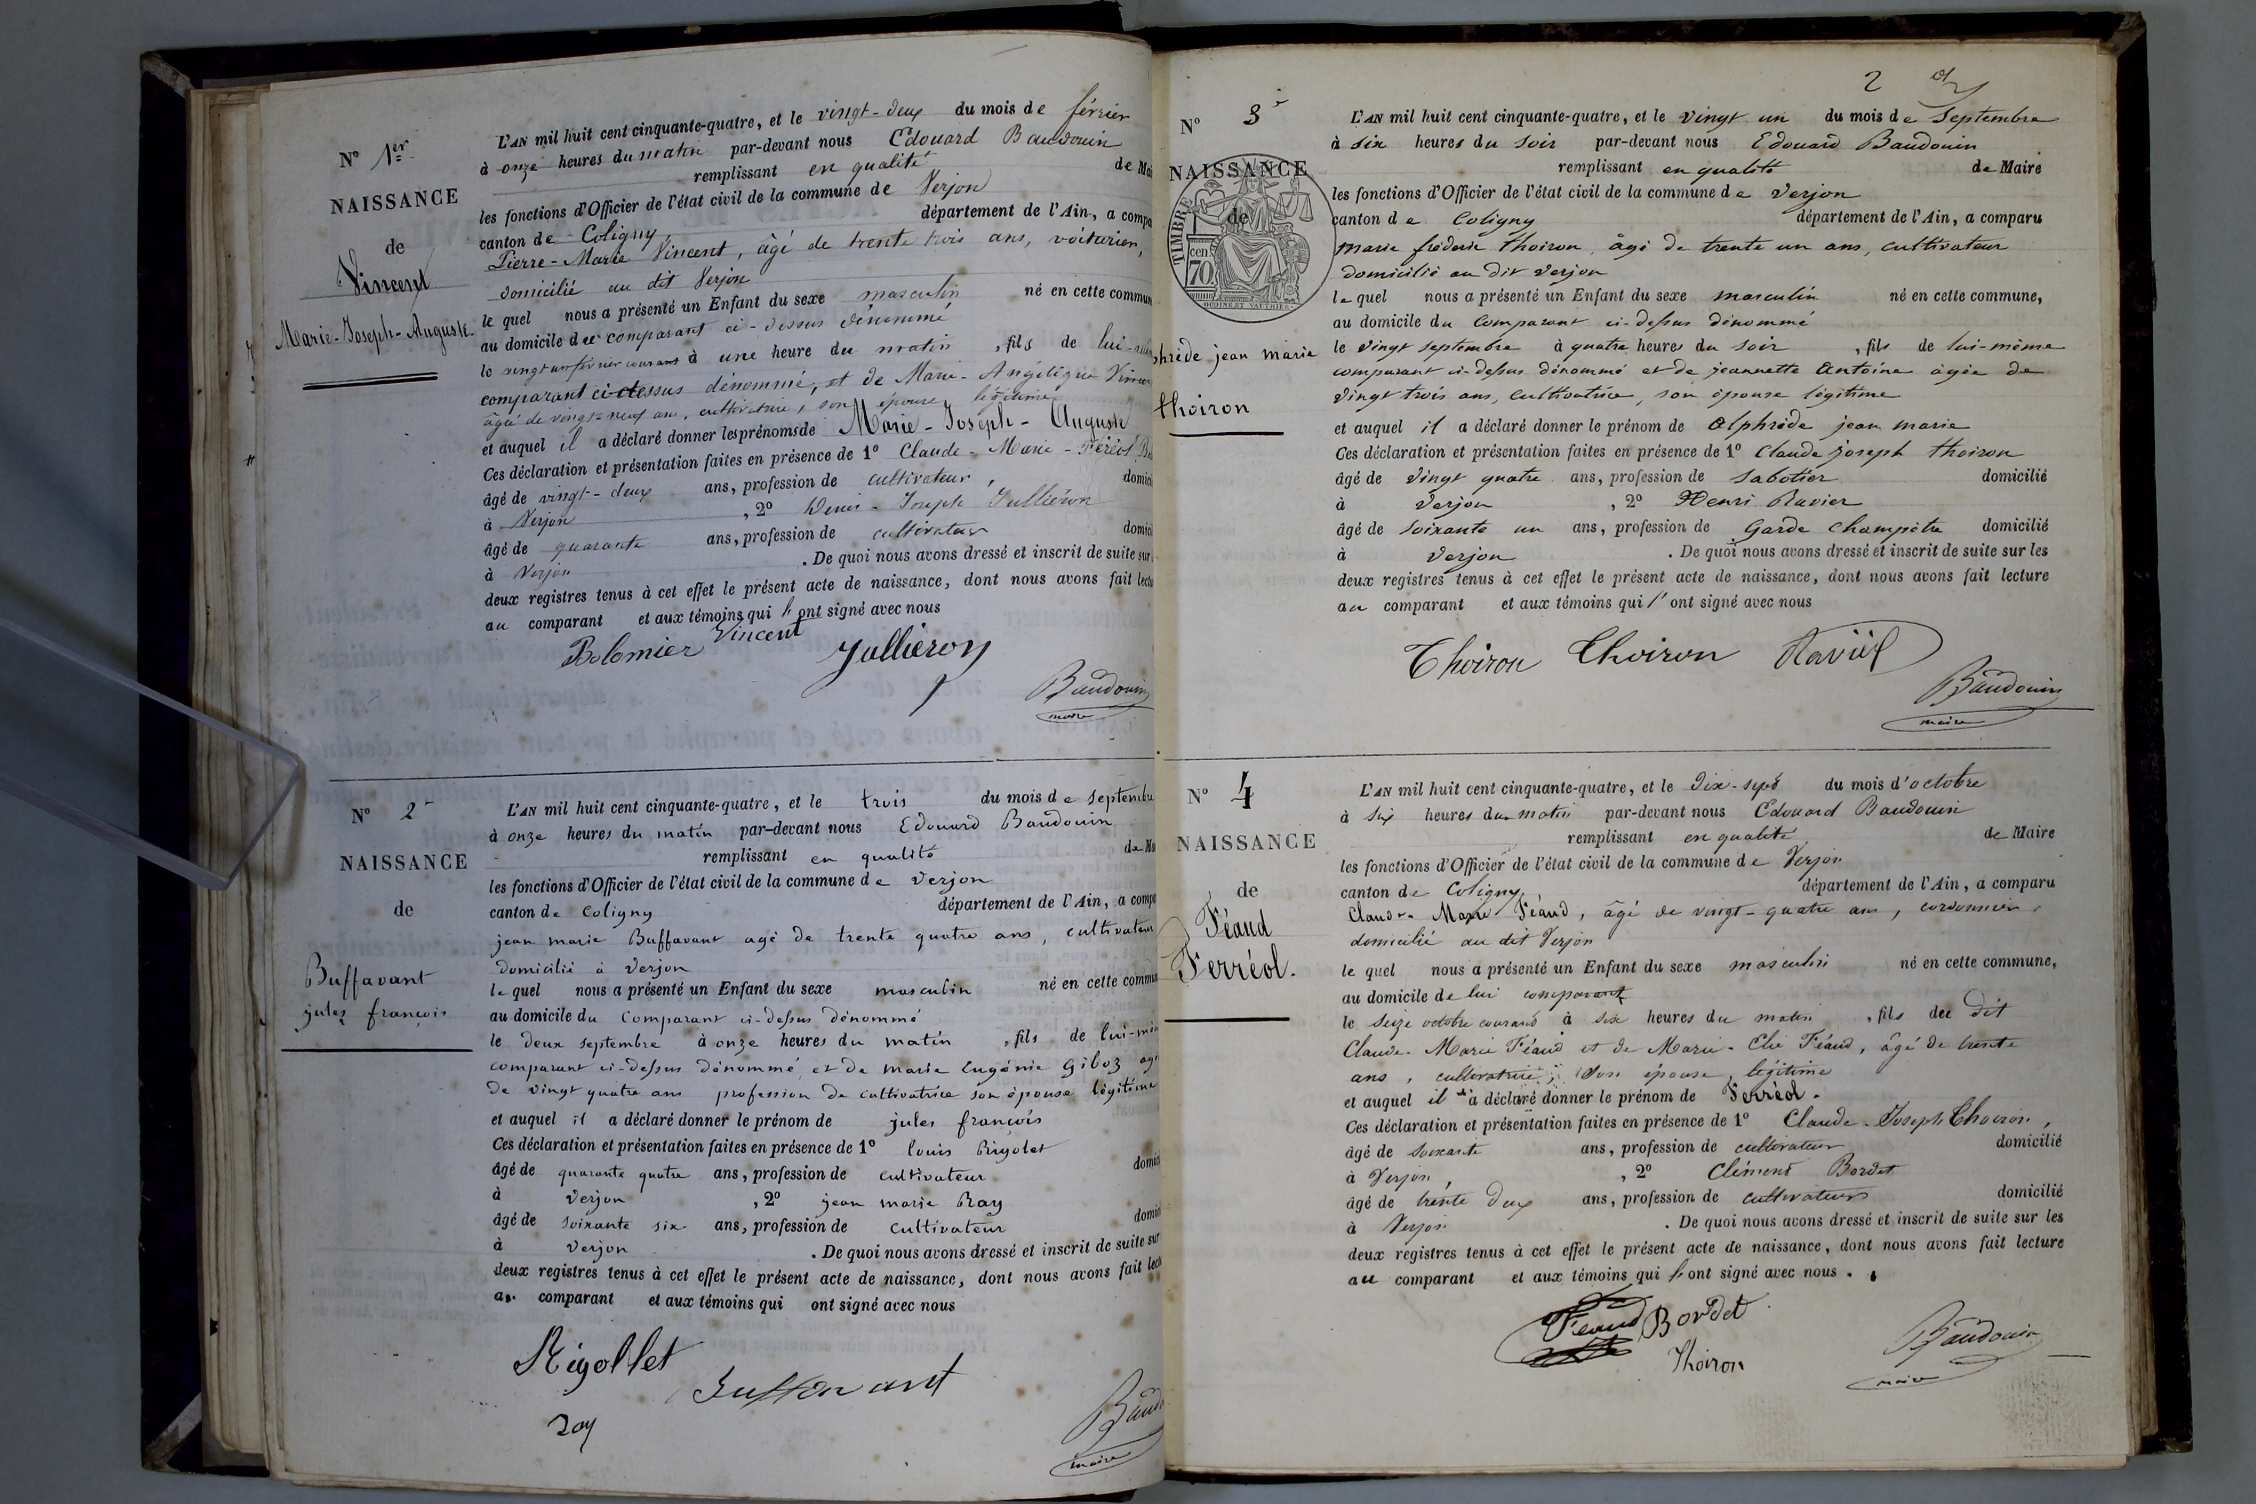 N° 1er
NAISSANCE
de
Vincent
Marie-Joseph-Auguste
L'AN mil huit cent cinquante-quatre, et le vingt-deux du mois de février
à onze heures du matin par-devant nous Edouard Baudouin
remplissant en qualité de Mai
les fonctions d'Officier de l'état civil de la commune de Verjon
canton de Coligny département de l'Ain, a compa
Pierre-Marie Vincent, âgé de trente trois ans, voiturier,
domicilié au dit Verjon
le quel nous a présenté un Enfant du sexe masculin né en cette commun
au domicile du comparant ci-dessus dénommé
le vingt un février courant à une heure du matin, fils de lui-
comparant ci-dessus dénommé, et de Marie-Angélique Vincen
âgée de vingt-neuf ans, cultivatrice, son épouse légitime
et auquel il a déclaré donner les prénoms de Marie-Joseph-Auguste
Ces déclaration et présentation faites en présence de 1° Claude-Marie-Féréol Bo
âgé de vingt-deux ans, profession de cultivateur, domici
à Verjon, 2° Denis-Joseph Julliéron
âgé de quarante ans, profession de cultivateur domici
à Verjon. De quoi nous avons dressé et inscrit de suite sur
deux registres tenus à cet effet le présent acte de naissance, dont nous avons fait lectu
au comparant et aux témoins qui l'ont signé avec nous
Bolomier Vincent Julliéron
Baudouin
maire
N° 2
NAISSANCE
de
Buffavant
jules françois
L'AN mil huit cent cinquante-quatre, et le trois du mois de septembre
à onze heures du matin par-devant nous Edouard Baudouin
remplissant en qualité de Ma
les fonctions d'Officier de l'état civil de la commune de Verjon
canton de Coligny département de l'Ain, a compa
jean marie Buffavant agé de trente quatre ans, cultivateur
domicilié à Verjon
le quel nous a présenté un Enfant du sexe masculin né en cette commun
au domicile du comparant ci-dessus dénommé
le deux septembre à onze heures du matin, fils de lui-mê
comparant ci-dessus dénommé et de marie Eugénie Giboz agé
de vingt quatre ans profession de cultivatrice son épouse légitime
et auquel il a déclaré donner le prénom de jules françois
Ces déclaration et présentation faites en présence de 1° louis Rigolet
âgé de quarante quatre ans, profession de cultivateur domici
à Verjon, 2° jean marie Ray
âgé de soixante six ans, profession de cultivateur domici
à Verjon. De quoi nous avons dressé et inscrit de suite sur
deux registres tenus à cet effet le présent acte de naissance, dont nous avons fait lect
au comparant et aux témoins qui ont signé avec nous
Rigollet
Buffavant
Ray
Baudo
maire
2
N° 3
NAISSANCE
de
TIMBRE
cen.
70
phrède jean marie
thoiron
L'AN mil huit cent cinquante-quatre, et le vingt un du mois de Septembre
à six heures du soir par-devant nous Edouard Baudouin
remplissant en qualité de Maire
les fonctions d'Officier de l'état civil de la commune de Verjon
canton de Coligny département de l'Ain, a comparu
marie fréderic thoiron âgé de trente un ans, cultivateur
domicilié au dit Verjon
le quel nous a présenté un Enfant du sexe masculin né en cette commune,
au domicile du comparant ci-dessus dénommé
le vingt septembre à quatre heures du soir, fils de lui-même
comparant ci-dessus dénommé et de jeannette Antoine agée de
vingt trois ans, cultivatrice, son épouse légitime
et auquel il a déclaré donner le prénom de Alphrède jean marie
Ces déclaration et présentation faites en présence de 1° Claude joseph thoiron
âgé de vingt quatre ans, profession de Sabotier domicilié
à Verjon, 2° Henri Ravier
âgé de soixante un ans, profession de Garde Champètre domicilié
à Verjon. De quoi nous avons dressé et inscrit de suite sur les
deux registres tenus à cet effet le présent acte de naissance, dont nous avons fait lecture
au comparant et aux témoins qui l'ont signé avec nous
Thoiron Thoiron
Baudouin
maire
N° 4
NAISSANCE
de
Féaud
Ferréol.
L'AN mil huit cent cinquante-quatre, et le dix-sept du mois d'octobre
à six heures du matin par-devant nous Edouard Baudouin
remplissant en qualité de Maire
les fonctions d'Officier de l'état civil de la commune de Verjon
canton de Coligny département de l'Ain, a comparu
Claude-Marie Féaud, âgé de vingt-quatre ans, cordonnier,
domicilié au dit Verjon
le quel nous a présenté un Enfant du sexe masculin né en cette commune,
au domicile de lui comparant
le seize octobre courant à six heures du matin, fils du dit
Claude-Marie Féaud et de Marie-Elie Féaud, âgé de trente
ans, cultivatrice, son épouse légitime
et auquel il a déclaré donner le prénom de Ferréol.
Ces déclaration et présentation faites en présence de 1° Claude-Joseph Thoiron,
âgé de soixante ans, profession de cultivateur domicilié
à Verjon, 2° Clément Bordet
âgé de trente deux ans, profession de cultivateur domicilié
à Verjon. De quoi nous avons dressé et inscrit de suite sur les
deux registres tenus à cet effet le présent acte de naissance, dont nous avons fait lecture
au comparant et aux témoins qui l'ont signé avec nous.
Féaud Bordet
Thoiron
Baudouin
maire